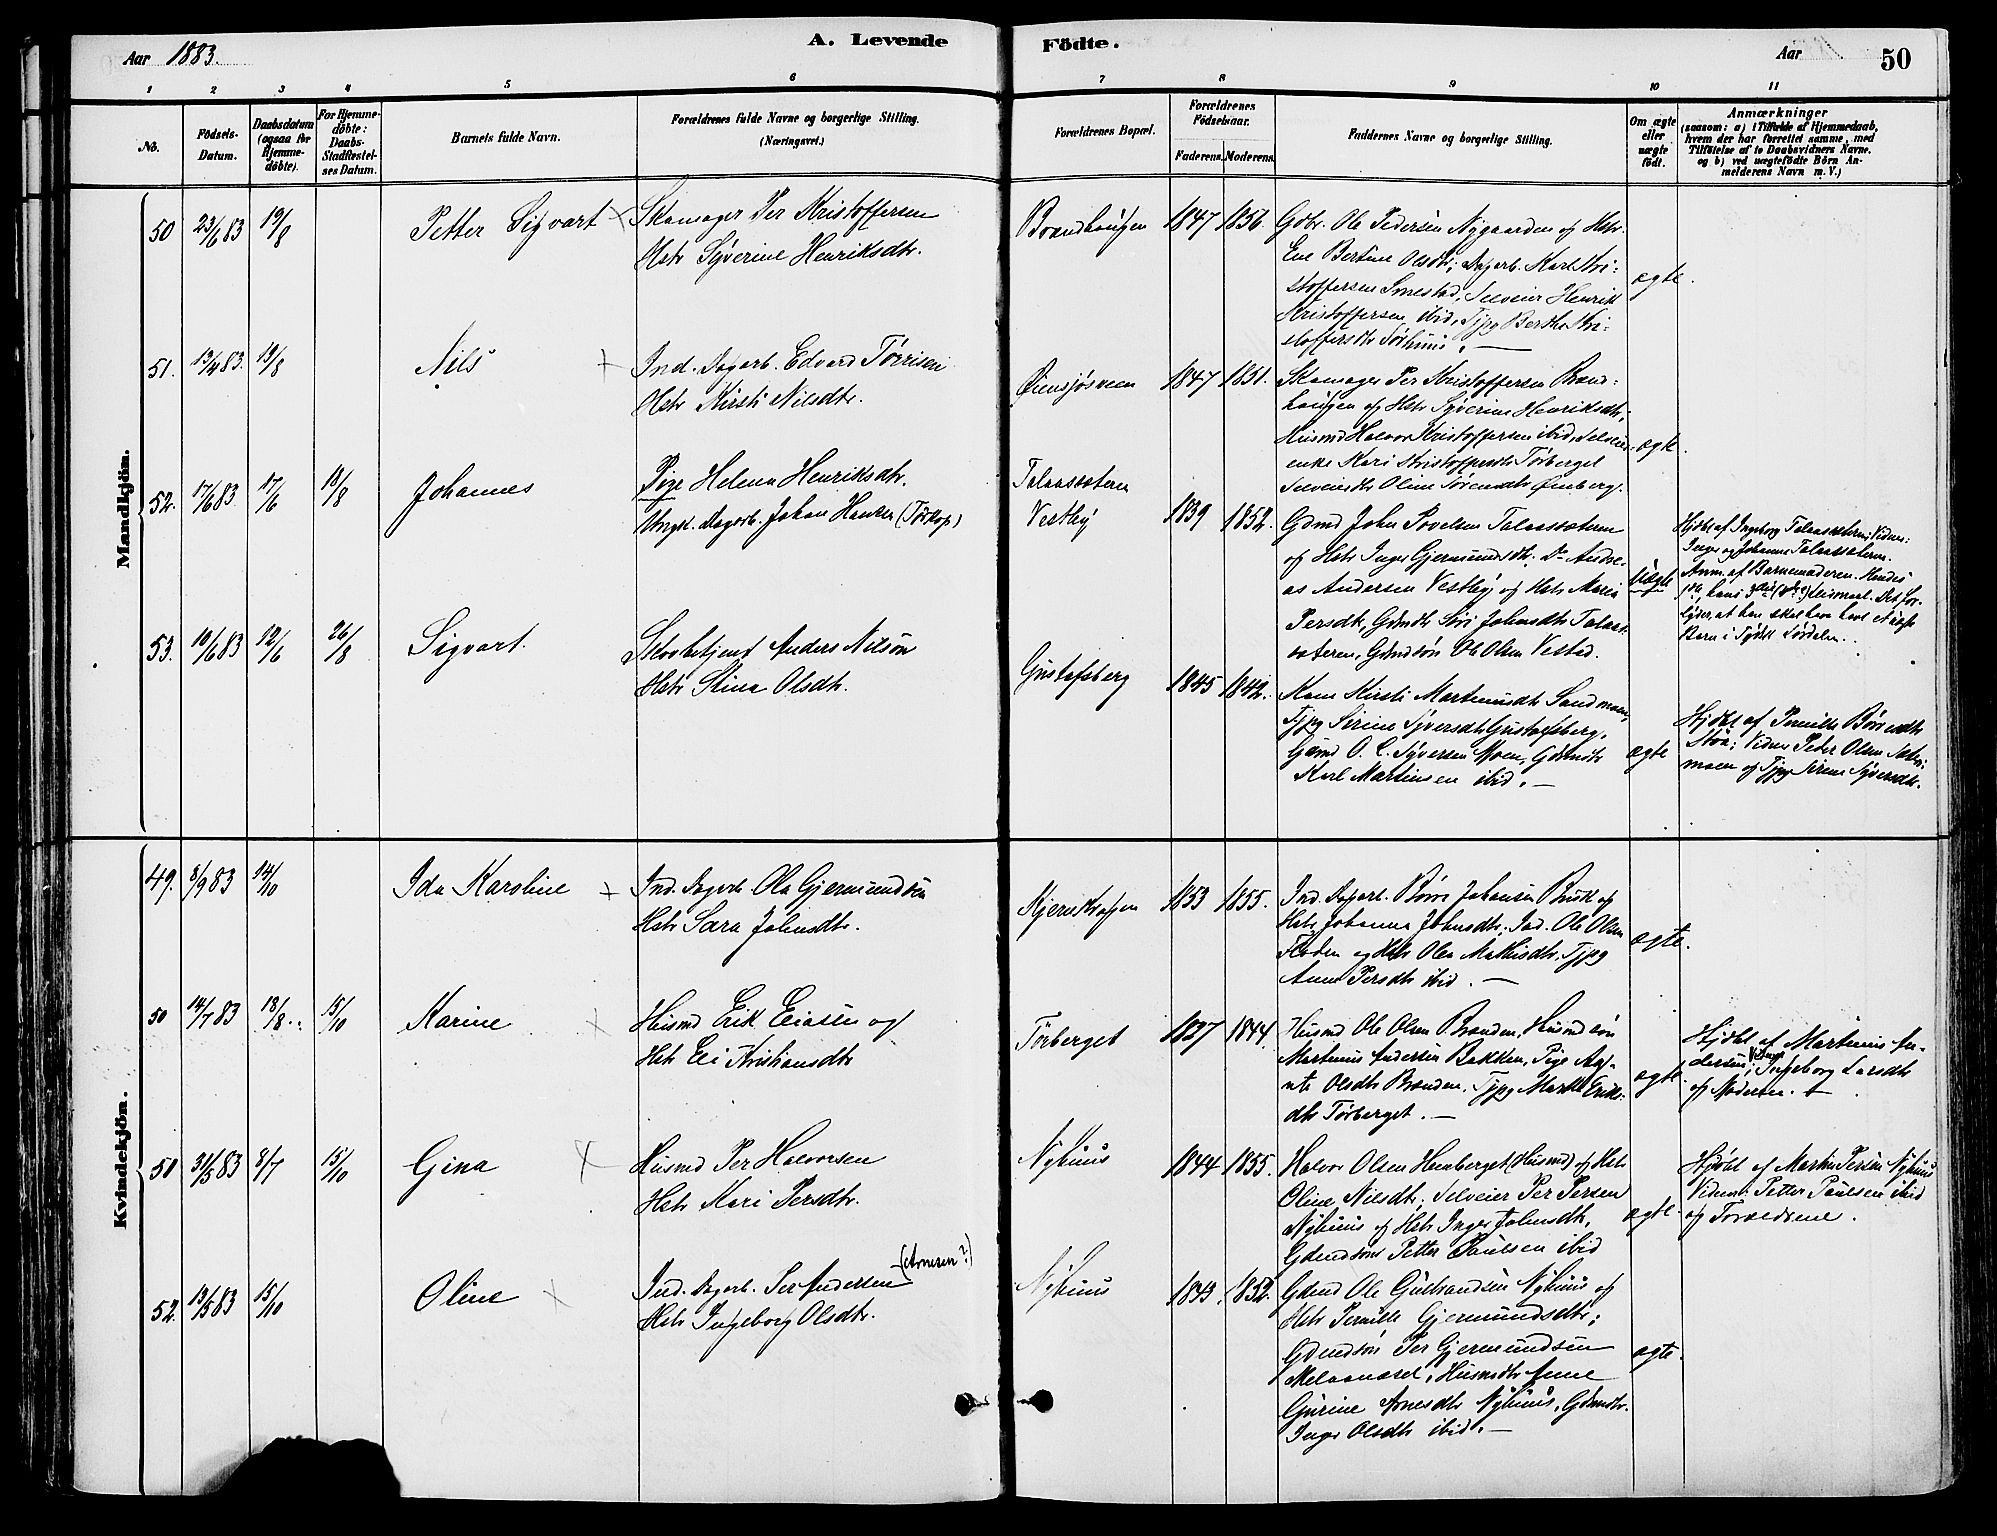 Aar 1883.
A. Levende
Födte.
Aar
50
1 2 3 4 5 6 7 8 9 10 11
No.
Födsels-
Datum.
Daabsdatum
(ogsaa for
Hjemme-
döbte).
For Hjemme-
döbte:
Daabs-
Stadfæstel-
ses Datum.
Barnets fulde Navn.
Forældrenes fulde Navne og borgerlige Stilling.
(Næringsvei.)
Forældrenes Bopæl.
Forældrenes
Födselsaar.
Faderens. Moderens.
Faddernes Navne og borgerlige Stilling.
Om ægte
eller
uægte
födt.
Anmærkninger
(saasom: a) i Tilfælde af Hjemmedaab,
hvem der har forrettet samme, med
Tilföielse af to Daabsvidners Navne.
og b) ved uægtefödte Börn An-
melderens Navn m. V.)
Mandkjön.
50 23/6 83 19/8 Petter Sigvart
Skomager Per Kristoffersen
Hstr Syverine Henriksdtr.
Brændhaugen 1847 1856.
Gdbr. Ole Pedersen Nygaarden og Hstr.
Eve Bertine Olsdtr; Dagarb. Karl Kri-
stoffersen Smestad, Selveier Henrik
Kristoffersen ibid, Tjpg Berthe Kri-
stoffersdtr Sørhuus.
ægte.
51. 13/4 83. 19/8 Nils
Ind. Dagarb. Edvard Tørrisen
Hstr Kirsti Nilsdtr.
Øiensjøsveen 1847 1851.
Skomager Per Kristoffersen Brænd-
haugen og Hstr Syverine Henriksdtr;
Husmd Halvor Kristoffersen ibid, Selveier-
enke Kari Kristoffersdtr Tørberget
Selveierdtr Oline Sørensdtr Øinberg.
ægte.
52. 17/6 83 17/6 19/8 Johannes
Pige Helena Henriksdtr.
Ungk. Dagarb. Johan Hansen (Torkop)
Talaassæteren
Vestby 1839 1852.
Gdmd John Povelsen Talaassæteren
og Hstr Inger Gjermundsdtr. Do Andre-
as Andersen Vestby og Hstr Maria
Persdtr, Gdmdtr Siri Johnsdtr Talaas-
sæteren, Gdmdsön Ole Olsen Vestad.
Uægte
Hjdbt af Ingeborg Talaassæteren; Vidner:
Inger og Johanne Talaassæteren.
Anm. af Barnemoderen. Hendes
Leiermaal. Det for-
lyder, at han skal have havt et uægte
Barn i Søndre
53. 10/6 83 12/6 26/8 Sigvart.
Skovbetjent Anders Nilsön
Hstr Stina Olsdtr.
Gustafsberg 1845 1842.
Kone Kirsti Martinusdtr Sandmoen,
Tjpg Sirine Syversdtr Gustafsberg,
Gdmd O. C. Syversen Moen, Gdmdtr
Karl Martinsen ibid.
ægte
Hjdbt af Pernille Börresdtr
Støa; Vidner Peder Olsen Sæter-
moen og Tjpg Sirene Syversdtr.
Kvindekjön.
49. 8/9 83 14/10 Ida Karoline
Ind. Dagarb. Ola Gjermundsen
Hstr Sara Johnsdtr.
Kjernskogen 1853 1855.
Ind. Dagarb. Börre Johansen Busk og
Hstr Johanna Johnsdtr, Ind. Ole Olsen
Floden og Hstr Olea Mathisdtr, Tjpg
Anne Persdtr ibid.
ægte.
50 14/7 83 18/8 15/10 Karine
Husmd Erik Eriksen og
Hstr Eli Kristiansdtr
Tørberget 1827 1844.
Husmd Ole Olsen Brænden, Husmdsön
Martinus Andersen Bakken, Pige Ag-
nete Olsdtr Brænden, Tjpg Marthe Eriks-
dtr Tørberget.
ægte
Hjdbt af Martinus An-
dersen; Vidner Ingeborg Larsdtr
og Moderen.
51 31/5 83 8/7 15/10 Gina
Husmd Per Halvorsen
Hstr Kari Persdtr.
Nyhuus 1844 1855.
Halvor Olsen Hemberget (Husmd) og Hstr
Oline Nilsdtr, Selveier Per Persen
Nyhuus og Hstr Inger Johnsdtr,
Gdmdsön Petter Paulsen ibid
ægte.
Hjdbt af Martin Persen Nyhuus
Vidner: Petter Paulsen ibid
og Forældrene.
52. 13/5 83 15/10 Oline
(Arnesen?)
Ind. Dagarb. Per Andersen
Hstr Ingeborg Olsdtr.
Nyhuus 1843. 1852.
Gdmd Ole Gulbrandsen Nyhuus og
Hstr Pernille Gjermundsdtr;
Gdmdsön Per Gjermundsen
Melaanæset, Husmdtr Anne
Gurine Arnesdtr Nyhuus, Gdmdtr.
Inger Olsdtr ibid.
ægte.